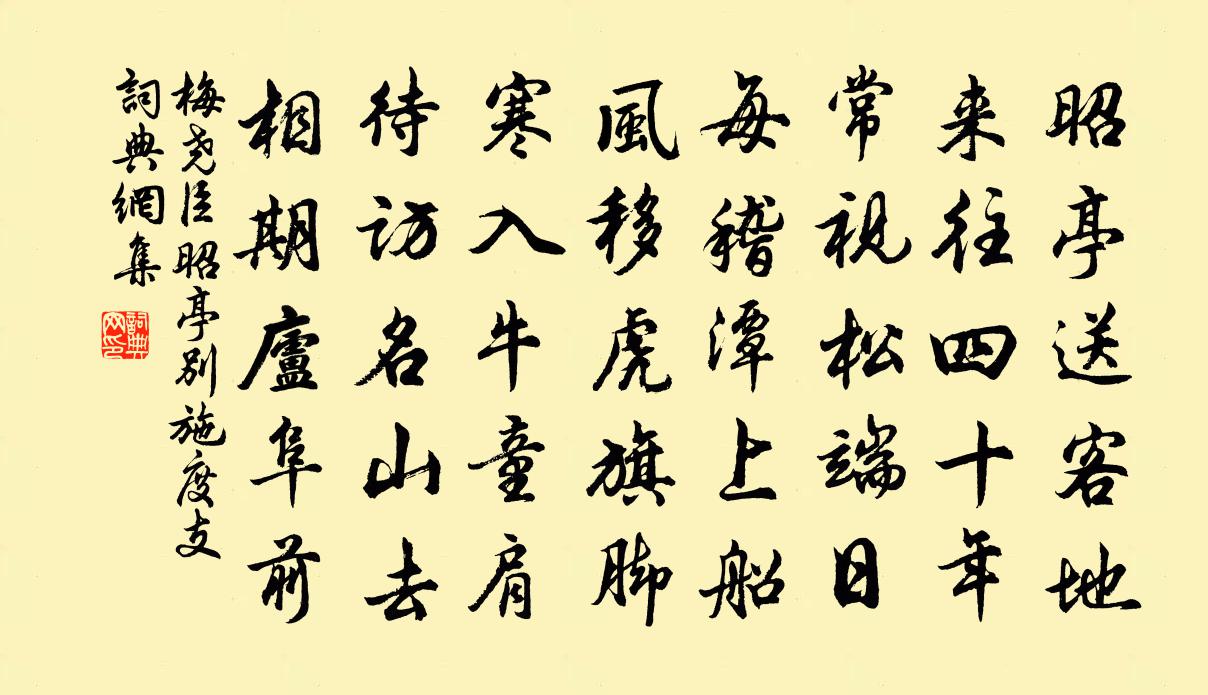 昭亭送客地
来往四十年
常視松端日
每稽潭上船
風移虎旗脚
寒入牛童肩
待訪名山去
相期廬阜前
梅尭臣昭亭别施度支
詞典網集
詞典网印